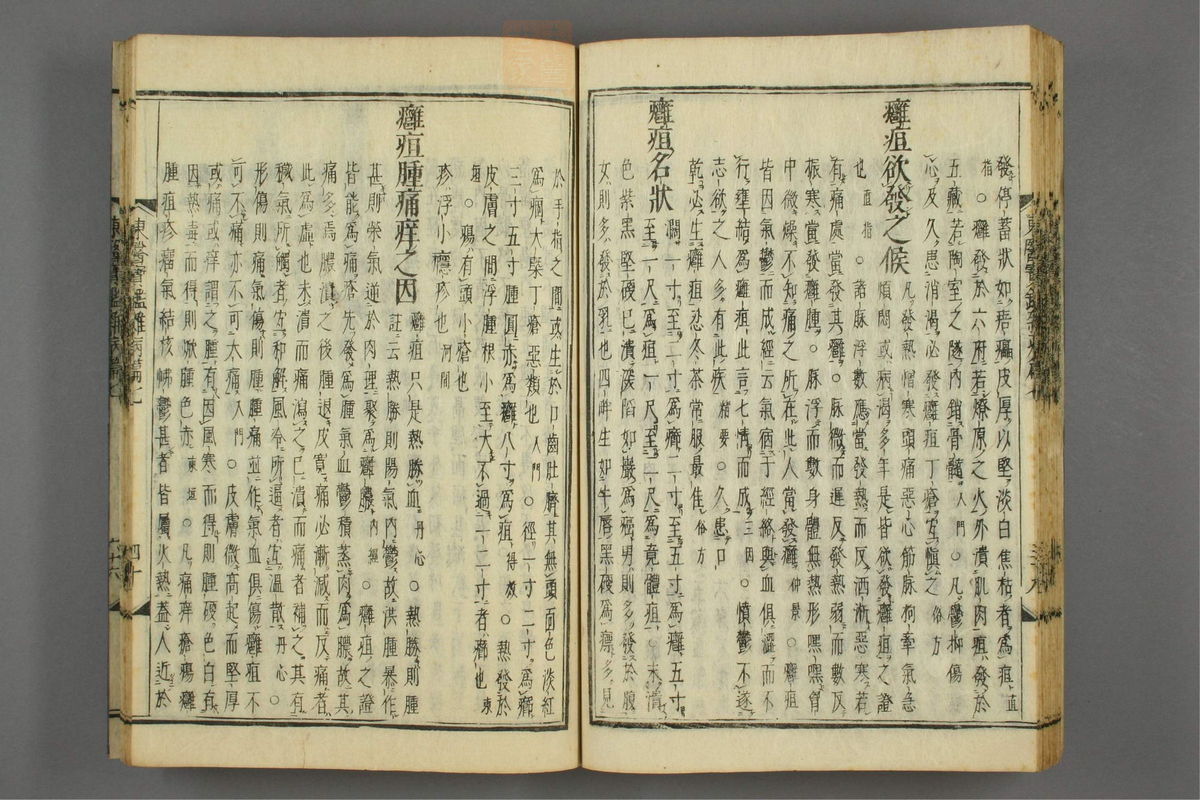 發停蓄狀如痦㿔皮厚以堅淡白焦枯者爲疽直
指○癰發於六府若燎原之火外潰肌肉疽發於
五藏若陶室之隧內銷骨髓入門○凡鬱抑傷
心及久患消渴必發癰疽丁瘡宜愼之俗方
癰疽欲發之候
凡發熱憎寒頭痛惡心筋脉拘牽氣急
煩悶或病渴多年是皆欲發癰疽之證
也直指○諸脉浮數應當發熱而反洒淅惡寒若
有痛處當發其癰○脉微而遲反發熱弱而數反
振寒當發癰腫○脉浮而數身體無熱形嘿嘿胷
中微燥不知痛之所在此人當發癰仲景○癰疽
皆因氣鬱而成經云氣病于經絡與血俱澁而不
行壅結爲癰疽此言七情而成三因○憤鬱不遂
志欲之人多有此疾精要○久患口
乾必生癰疽忍冬茶常服最佳俗方
癰疽名狀
濶一寸至二寸爲癤二寸至五寸爲癰五寸
至一尺爲疽一尺至二尺爲竟體疽○未潰
色紫黑堅硬已潰深陷如巖爲癌男則多發於腹
女則多發於乳也四畔生如牛唇黑硬爲瘭多見
於手指之間或生於口齒肚臍其無頭面色淡紅
爲癇大槩丁瘡惡類也入門○徑一寸二寸爲癤
三寸五寸腫圓亦爲癰八寸爲疽得效○熱發於
皮膚之間浮腫根小至大不過一二寸者癤也東
垣○瘍有頭小瘡也
疹浮小癮疹也河間
癰疽腫痛痒之因
癰疽只是熱勝血丹心○熱勝則腫
註云熱勝則陽氣內鬱故洪腫暴作
甚則榮氣逆於肉理聚爲癰膿內經○癰疽之證
皆能爲痛瘡先發爲腫氣血鬱積蒸肉爲膿故其
痛多焉膿潰之後腫退皮寬痛必漸減而反痛者
此爲虛也未潰而痛瀉之已潰而痛者補之其有
穢氣所觸者宜和解風冷所逼者宜溫散丹心○
形傷則痛氣傷則腫腫痛並作氣血俱傷癰疽不
可不痛亦不可大痛入門○皮膚微高起而堅厚
或痛或痒謂之腫有因風寒而得則腫硬色白有
因熱毒而得則焮腫色赤東垣○凡痛痒瘡瘍癰
腫疽疹瘤氣結核怫鬱甚者皆屬火熱蓋人近於
東醫寶鑑雜病篇七